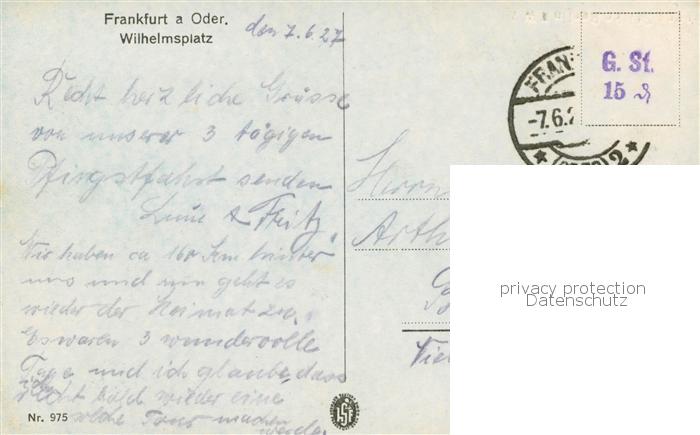 Frankfurt a Oder.
Wilhelmsplatz
den 7.6.27
G. St.
15 ₰
FRAN
-7.6.2
(ODER) 2
Recht herzliche Grüsse
von unserer 3 tägigen
Pfingstfahrt senden
& Fritz
Wir haben ca 160 Km hinter
uns und nun geht es
wieder der Heimat zu.
Es waren 3 wundervolle
Tage und ich glaube, dass
bald wieder eine
solche Tour machen
werde
Herrn
Arth
privacy protection
Datenschutz
Nr. 975